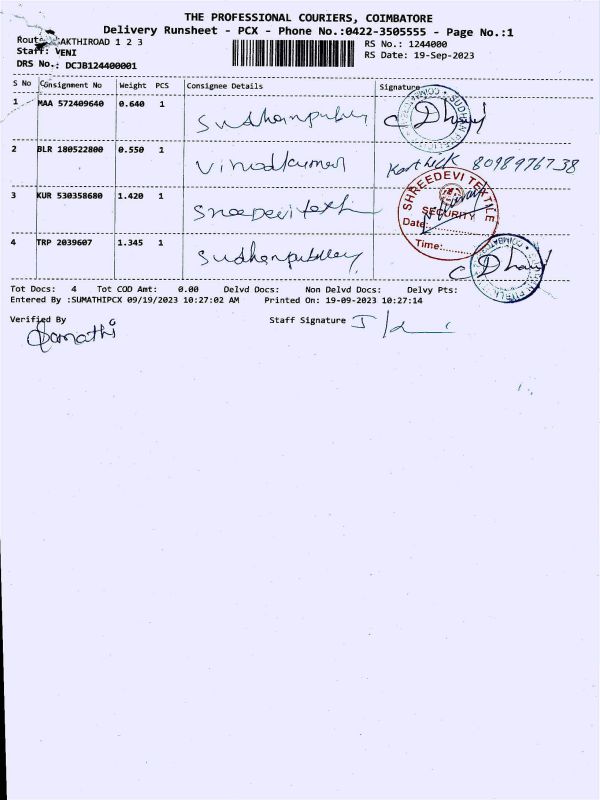 THE PROFESSIONAL COURIERS, COIMBATORE
Delivery Runsheet - PCX - Phone No.:0422-3505555 - Page No.:1
AKTHIROAD 1 2 3
RS No.: 1244000
Staff: VENI
RS Date: 19-Sep-2023
DRS No.: DCJB124400001
S No Consignment No Weight PCS Consignee Details Signature
1 MAA 572409640 0.640 1
2 BLR 180522800 0.550 1 Vinodkumar Karthick 8098976738
3 KUR 530358680 1.420 1
SHREEDEVI TEXTILE
SECURITY
Date:
Time:
4 TRP 2039607 1.345 1
Tot Docs: 4 Tot COD Amt: 0.00 Delvd Docs: Non Delvd Docs: Delvy Pts:
Entered By :SUMATHIPCX 09/19/2023 10:27:02 AM Printed On: 19-09-2023 10:27:14
Verified By Staff Signature